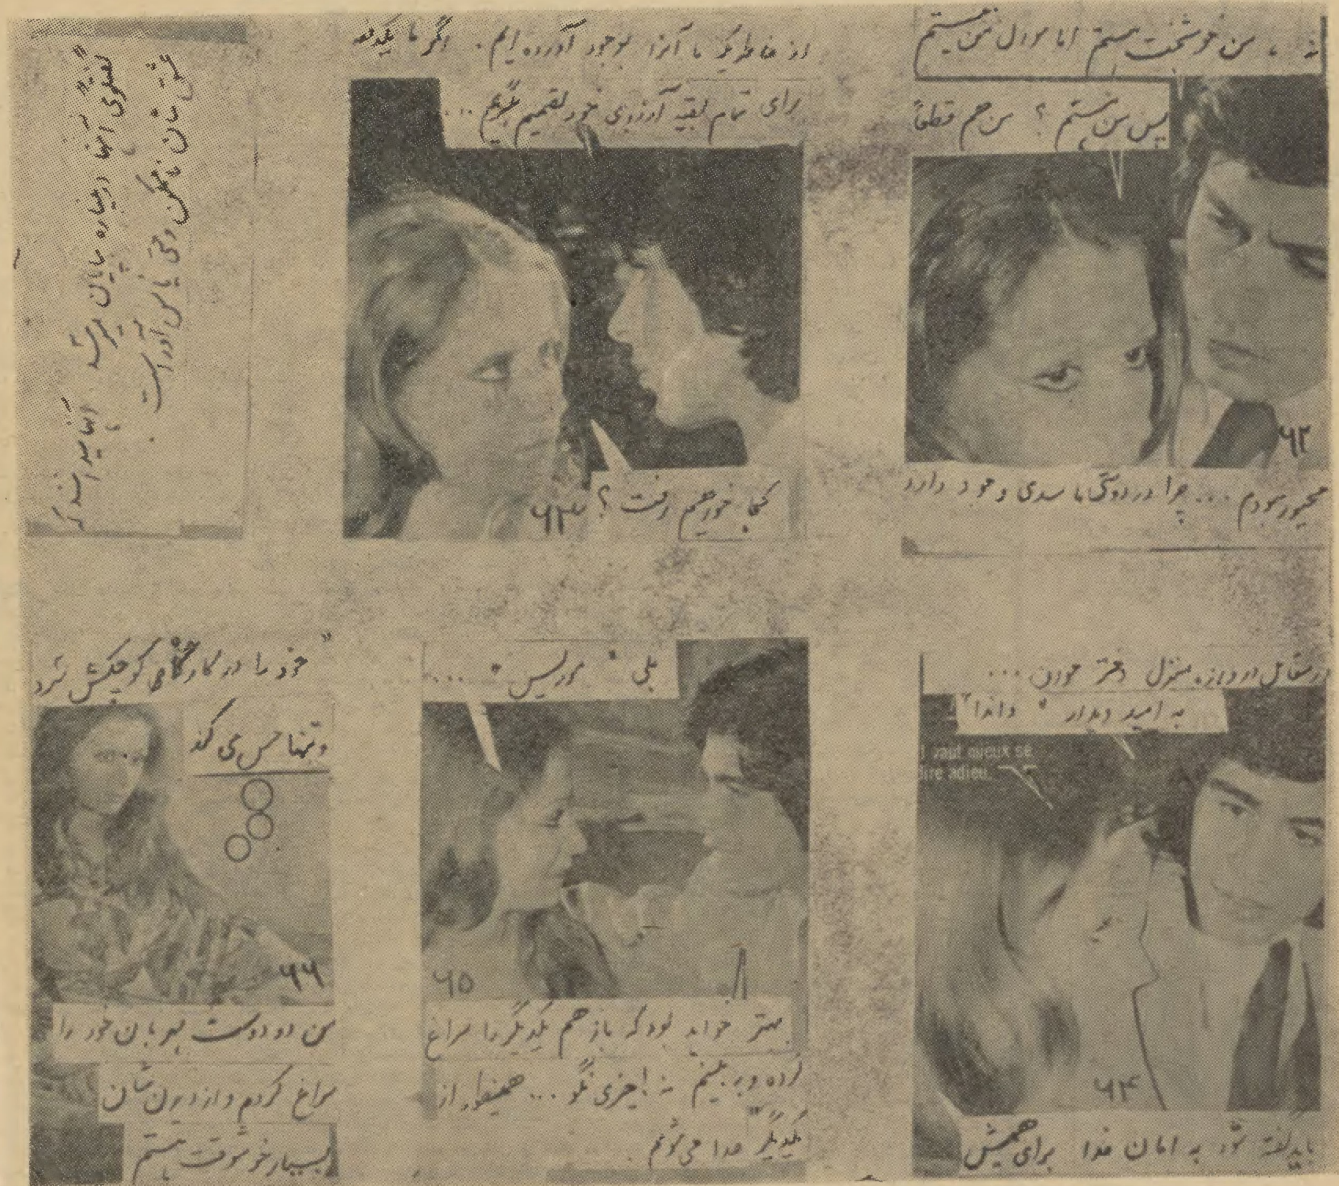 نه ، من خوشبخت هستم اما مورال من نیستم
پس من هستم ؟ من هم قطعاً
۶۲
مجبور نبودم ... چرا در دوستی ما سدی وجود دارد
ما آنرا بوجود آورده ایم . اگر ما یکدفعه
برای تمام بقیه آرزوی خود تصمیم بگیریم ...
کجا خواهیم رفت ؟
۶۳
گفتگوی آنها درینباره بپایان میرسد آنها میدانند که
عشق شان ناممکن و حتی یأس آور است .
در مقابل دروازه منزل دختر جوان ...
به امید دیدار " واندا "
t vaut mieux se
dire adieu...
۶۴
باید گفته شود به امان خدا برای همیش
بلی " موریس " ....
۶۵
بهتر خواهد بود که باز هم یکدیگر را سراغ
کرده و ببینیم نه ! چیزی نگو ... همینطور از
یکدیگر جدا می شویم
" خود را در کارگاه کوچکش
و تنها حس می کند
۶۶
من دو دوست خود را
سراغ کردم و از دیدن شان
بسیار خوشوقت هستم